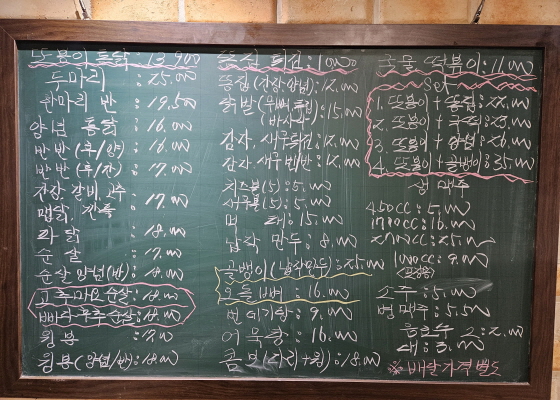 또봉이 통닭 : 13.900
두마리 : 25.000
한마리 반 : 19.500
양념 통닭 : 16.000
반반 (후/양) : 16.000
반반 (후/간) : 17.000
간장. 갈비. 고추
땡닭. : 17.000
파닭 : 18.000
순살 : 17.000
순살 양념(반) : 18.000
고추마요순살 : 18.000
순살 : 18.000
윙봉 : 17.000
윙봉 (양념/반) : 18.000
똥집 튀김 : 10000
똥집 (간장.양념) : 12.000
닭발(무뼈튀김) : 15.000
감자. 새우튀김 : 12.000
감자. 새우반반 : 12.000
치즈볼(5) : 5.000
새우볼(5) : 5.000
먹태 : 15.000
납작 만두 : 8.000
골뱅이 (납작만두) : 25.000
: 16.000
번데기탕 : 9.000
어묵탕 : 16.000
: 18.000
국물 떡볶이 : 11.000
Set
1. 또봉이 + 똥집 :
2. 또봉이 +
3. 또봉이 +
4. 또봉이 + 골뱅이 : 35.000
생 맥주
450cc : 5.000
1700cc : 16.000
2700cc : 25.000
1000cc : 9.000
소주 : 5.000
병 맥주 : 5.500
음료수 소 : 2.000
대 : 3.000
※ 배달가격 별도